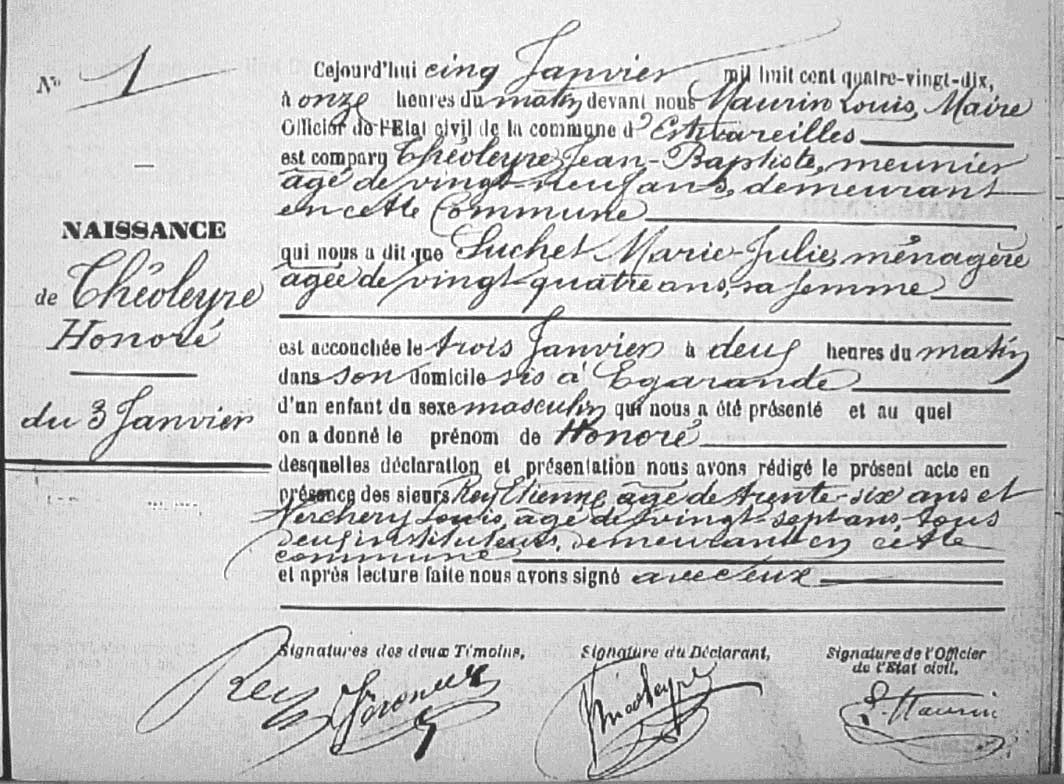 N° 1
NAISSANCE
de Théoleyre
Honoré
du 3 Janvier
Cejourd'hui cinq Janvier mil huit cent quatre-vingt-dix,
à onze heures du matin devant nous Maurin Louis, Maire
Officier de l'Etat civil de la commune d'Estivareilles
est comparu Théoleyre Jean-Baptiste, meunier
âgé de vingt-neuf ans, demeurant
en cette Commune
qui nous a dit que Suchet Marie-Julie, ménagère
âgée de vingt-quatre ans, sa femme
est accouchée le trois Janvier à deux heures du matin
dans son domicile sis à Egarande
d'un enfant du sexe masculin qui nous a été présenté et au quel
on a donné le prénom de Honoré
desquelles déclaration et présentation nous avons rédigé le présent acte en
présence des sieurs Rey Etienne, âgé de trente-six ans et
Verchery Louis, âgé de vingt-sept ans, tous
deux instituteurs, demeurant en cette
commune
et après lecture faite nous avons signé avec eux
Signatures des deux Témoins,
Signature du Déclarant,
Signature de l'Officier
de l'Etat civil,
Rey
Théoleyre
L. Maurin